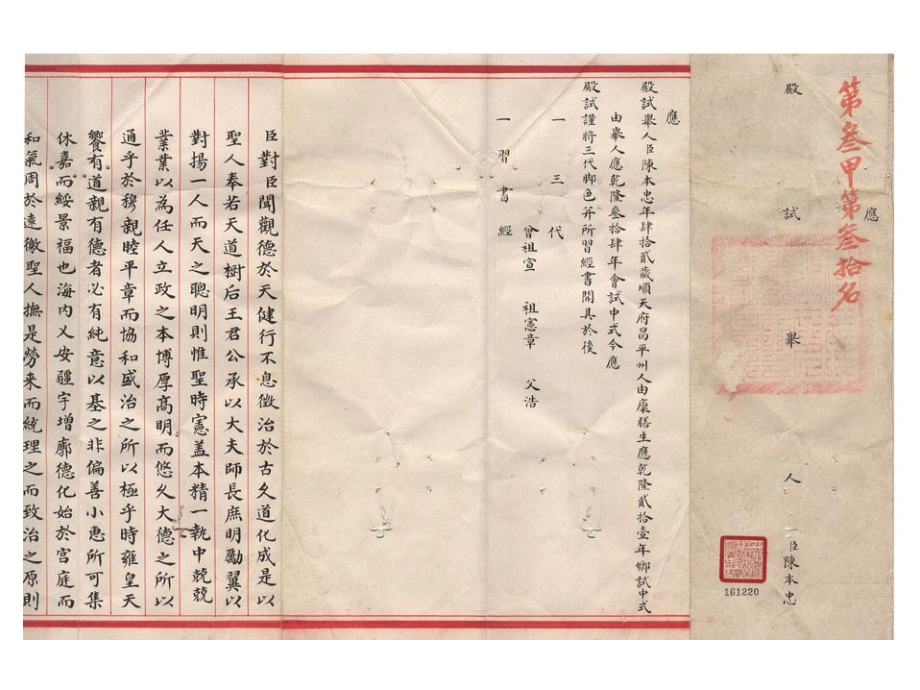 第叁甲第叁拾名
應
殿試舉人臣陳本忠
161220
應
殿試舉人臣陳本忠年肆拾貳歲順天府昌平州人由廩膳生應乾隆貳拾壹年鄉試中式
由舉人應乾隆叁拾肆年會試中式今應
殿試謹將三代脚色并所習經書開具於後
一三代
曾祖宣 祖憲章 父浩
一習書經
臣對臣聞觀德於天健行不息徵治於古久道化成是以
聖人奉若天道樹后王君公承以大夫師長庶明勵翼以
對揚一人而天之聰明則惟聖時憲盖本精一執中兢兢
業業以為任人立政之本博厚高明而悠久大德之所以
通乎於穆親睦平章而協和盛治之所以極乎時雍皇天
饗有道親有德者必有純意以基之非偏善小惠所可集
休嘉而綏景福也海内乂安疆宇增廓德化始於宮庭而
和氣周於遠徼聖人撫是勞來而統理之而致治之原則